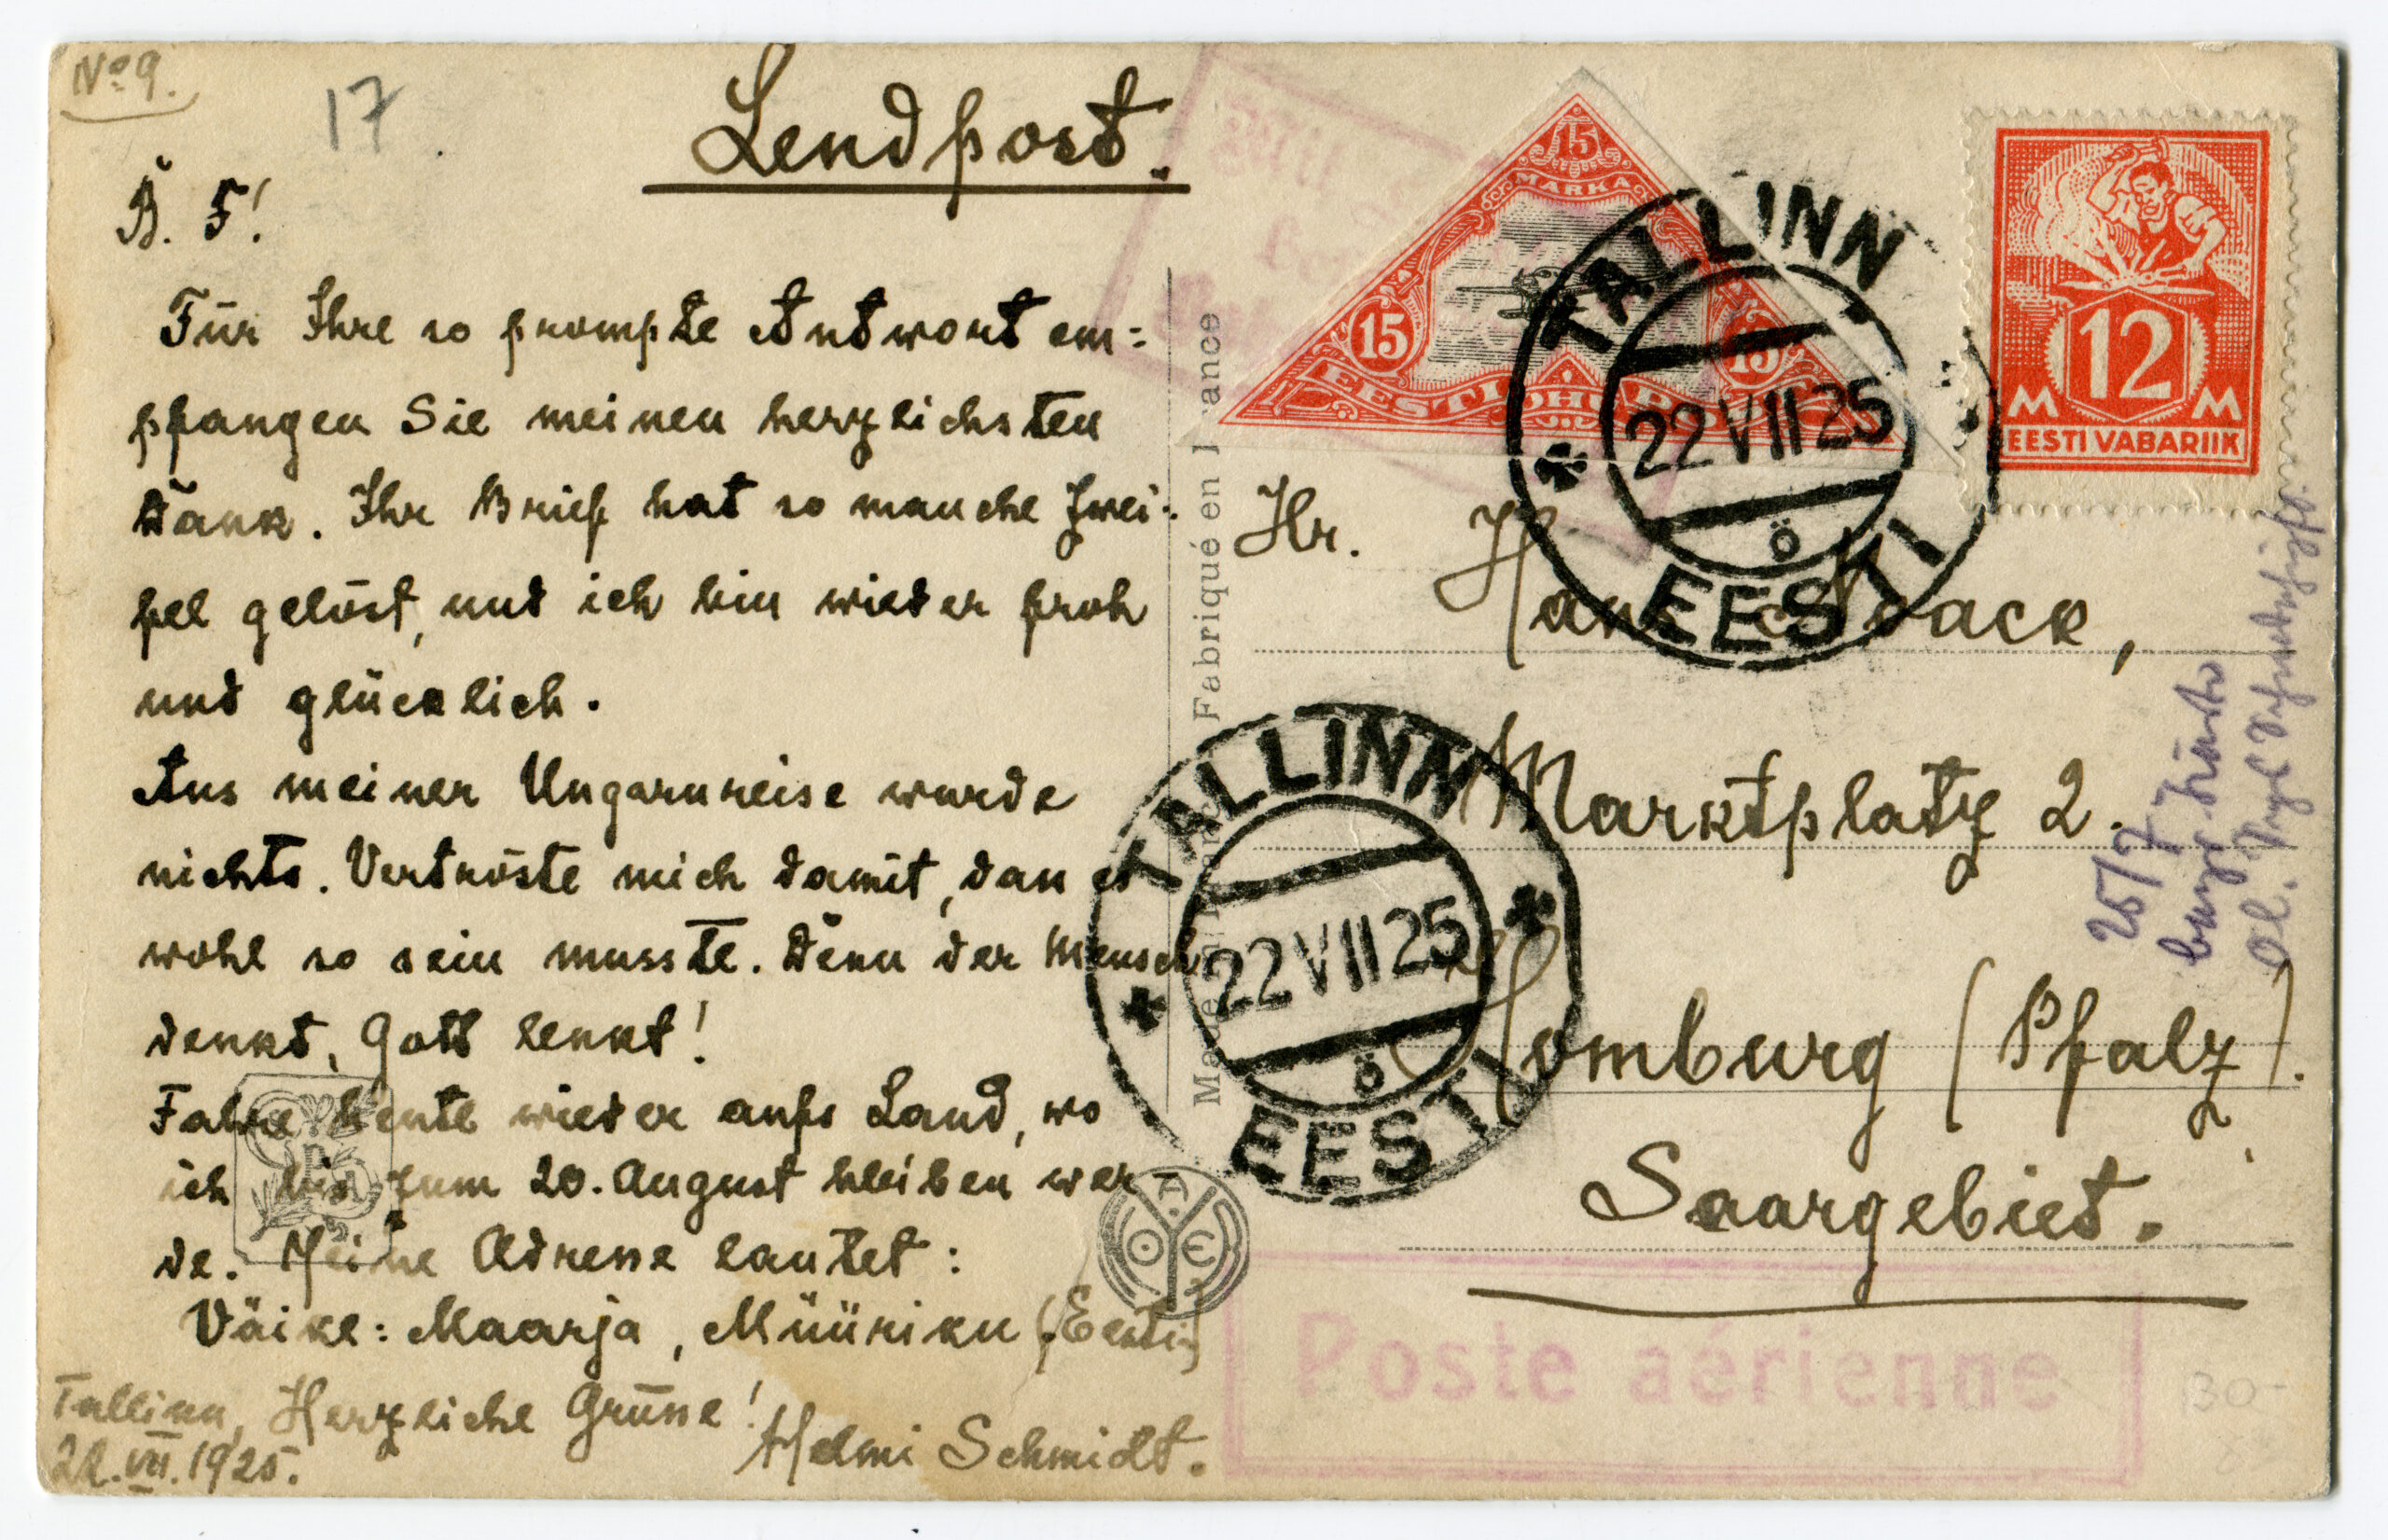 No 9.
17
Lendpost.
B. F!
Für Ihre so prompte Antwort em=
pfangen Sie meinen herzlichsten
Dank. Ihr Brief hat so manche Zwei=
fel gelöst, und ich bin wieder froh
und glücklich.
Aus meiner Ungarnreise wurde
nichts. Vertröste mich damit, dass es
wohl so sein musste. Denn der Mensch
denkt, Gott lenkt!
Fahre heute wieder aufs Land, wo
ich bis zum 20. August bleiben wer-
de. Meine Adresse lautet:
Väike=Maarja, Müüriku (Eesti)
Tallinn, Herzliche Grüsse!
22.VII.1925. Helmi Schmidt.
Made in France Fabriqué en France
15
MARKA
15 15
EESTI ÕHUPOST
12
M M
EESTI VABARIIK
TALLINN
22 VII 25
ö
EESTI
Hr. Hans Noack,
Marktplatz 2.
Homburg (Pfalz).
Saargebiet.
TALLINN
22 VII 25
ö
EESTI
A
O E
Poste aérienne
25/7
130-